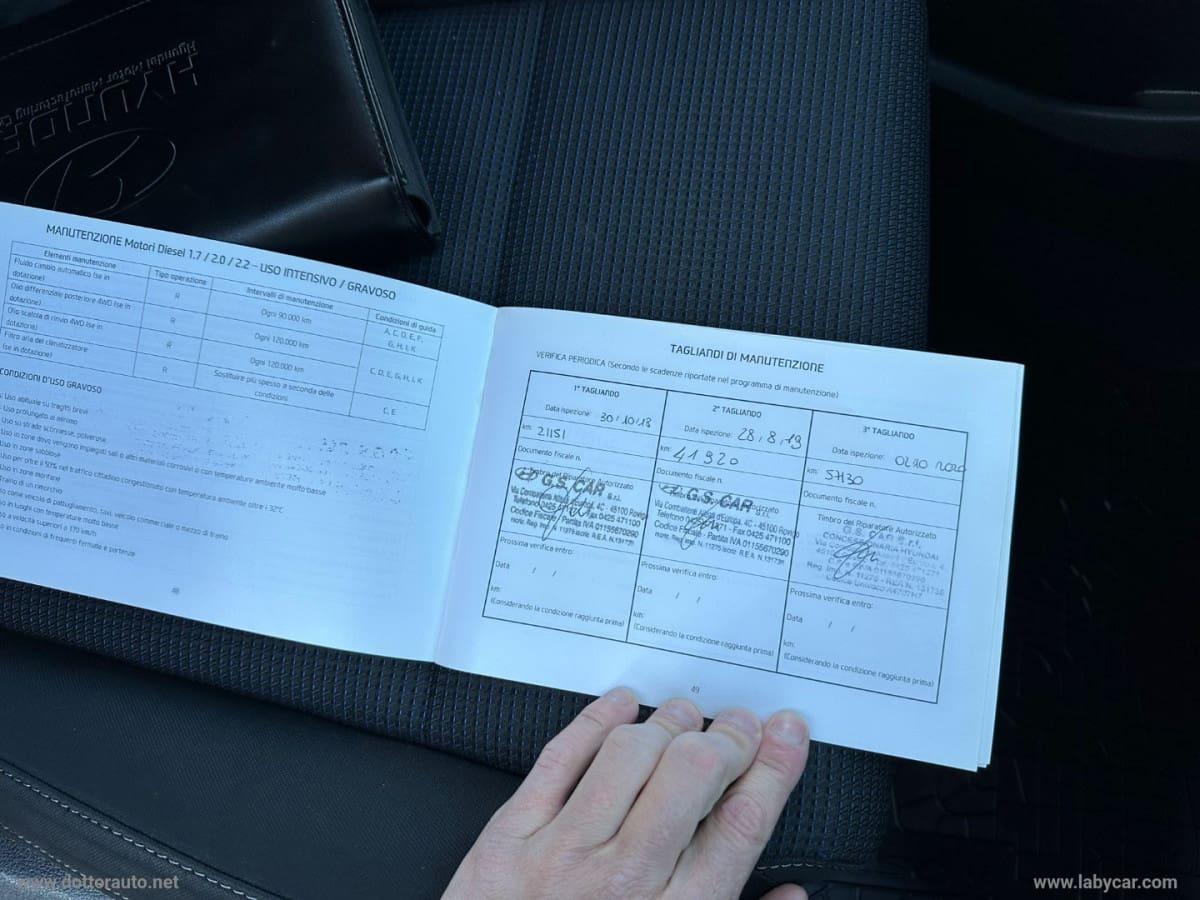 HYUNDAI
Hyundai Motor Manufacturing
MANUTENZIONE Motori Diesel 1.7 / 2.0 / 2.2 – USO INTENSIVO / GRAVOSO
Elementi manutenzione Tipo operazione Intervalli di manutenzione Condizioni di guida
Fluido cambio automatico (se in dotazione) R Ogni 90.000 km A, C, D, E, F, G, H, I, K
Olio differenziale posteriore 4WD (se in dotazione) R Ogni 120.000 km
Olio scatola di rinvio 4WD (se in dotazione) R Ogni 120.000 km C, D, E, G, H, I, K
Filtro aria del climatizzatore (se in dotazione) R Sostituire più spesso a seconda delle condizioni C, E
CONDIZIONI D'USO GRAVOSO
Uso abituale su tragitti brevi
Uso prolungato al minimo
Uso su strade sconnesse, polverose
Uso in zone dove vengono impiegati sali o altri materiali corrosivi o con temperature ambiente molto basse
Uso in zone sabbiose
Uso per oltre il 50% nel traffico cittadino congestionato con temperatura ambiente oltre i 32°C
Uso in zone montane
Traino di un rimorchio
come veicolo di pattugliamento, taxi, veicolo commerciale o mezzo di traino
in luoghi con temperature molto basse
a velocità superiori a 170 km/h
in condizioni di frequenti fermate e partenze
48
TAGLIANDI DI MANUTENZIONE
VERIFICA PERIODICA (Secondo le scadenze riportate nel programma di manutenzione)
1° TAGLIANDO
Data ispezione: 30.10.18
km: 21151
Documento fiscale n.
Timbro del Riparatore Autorizzato
G.S. CAR S.r.l.
Via Combattenti Alleati d'Europa, 4C - 45100 Rovigo
Telefono 0425 - Fax 0425 471100
Codice Fiscale - Partita IVA 01155670290
Iscriz. Reg. Imp. N. 11275 R.E.A. N.131738
Prossima verifica entro:
Data / /
km:
(Considerando la condizione raggiunta prima)
2° TAGLIANDO
Data ispezione: 28.8.19
km: 41920
Documento fiscale n.
Timbro del Riparatore Autorizzato
G.S. CAR S.r.l.
Via Combattenti Alleati d'Europa, 4C - 45100 Rovigo
Telefono 0425 471 - Fax 0425 471100
Codice Fiscale - Partita IVA 01155670290
Iscriz. Reg. Imp. N. 11275 R.E.A. N.131738
Prossima verifica entro:
Data / /
km:
(Considerando la condizione raggiunta prima)
3° TAGLIANDO
Data ispezione: 02 10 2020
km: 57130
Documento fiscale n.
Timbro del Riparatore Autorizzato
G.S. CAR S.r.l.
CONCESSIONARIA HYUNDAI
Reg. Imp. N. 11275 - REA N. 131738
Prossima verifica entro:
Data / /
km:
(Considerando la condizione raggiunta prima)
49
www.dottorauto.net
www.labycar.com